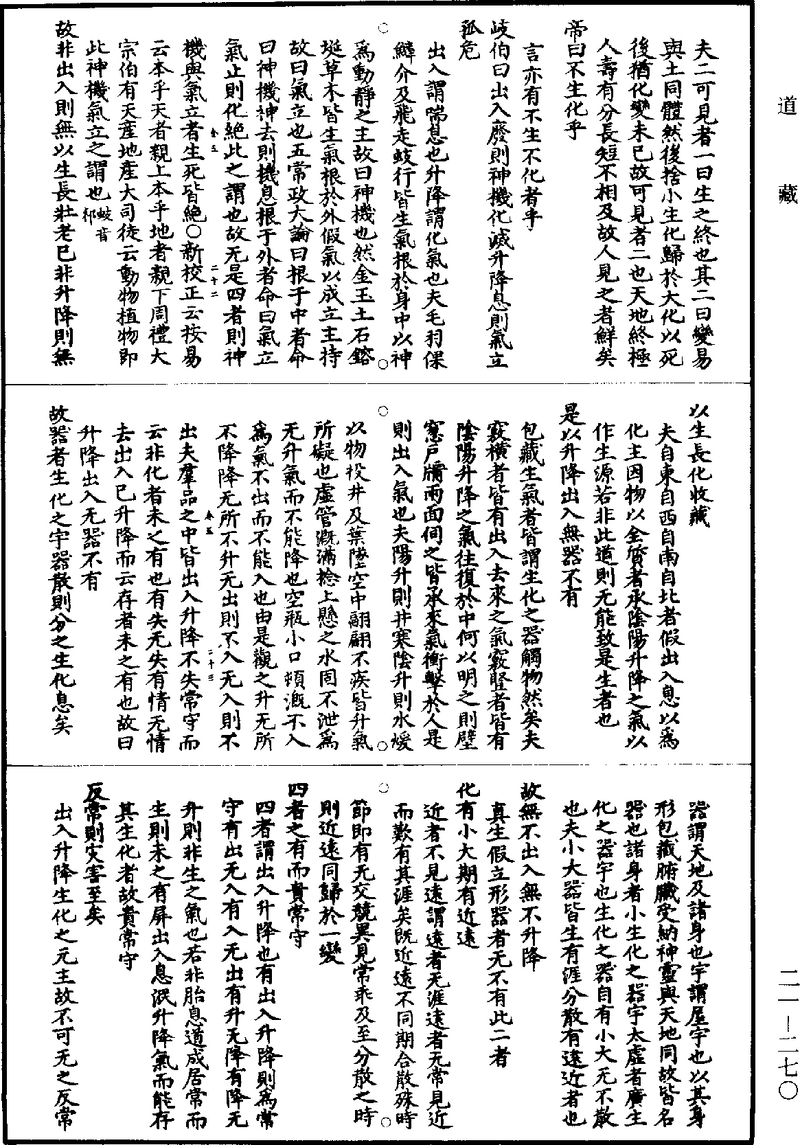 道藏
夫二可見者一曰生之終也其二曰變易
與土同體然後捨小生化歸於大化以死
後猶化變未已故可見者二也天地終極
人壽有分長短不相及故人見之者鮮矣
帝曰不生化乎
言亦有不生不化者乎
岐伯曰出入廢則神機化滅升降息則氣立
孤危
出入謂喘息也升降謂化氣也夫毛羽倮
鱗介及飛走蚑行皆生氣根於身中以神
為動靜之主故曰神機也然金玉土石鎔
埏草木皆生氣根於外假氣以成立主持
故曰氣立也五常政大論曰根于中者命
曰神機神去則機息根于外者命曰氣立
氣止則化絕此之謂也故无是四者則神
機與氣立者生死皆絕○新校正云按易
云本乎天者親上本乎地者親下周禮大
宗伯有天產地產大司徒云動物植物即
此神機氣立之謂也蚑音祁
故非出入則無以生長壯老已非升降則無
卷五 二十二
以生長化收藏
夫自東自西自南自北者假出入息以為
化主因物以全質者承陰陽升降之氣以
作生源若非此道則无能致是生者也
是以升降出入無器不有
包藏生氣者皆謂生化之器觸物然矣夫
竅橫者皆有出入去來之氣竅豎者皆有
陰陽升降之氣往復於中何以明之則壁
窓戶牖兩面伺之皆承來氣衝擊於人是
則出入氣也夫陽升則井寒陰升則水煖
以物投井及葉墜空中翩翩不疾皆升氣
所礙也虛管溉滿捻上懸之水固不泄為
无升氣而不能降也空瓶小口頓溉不入
為氣不出而不能入也由是觀之升无所
不降降无所不升无出則不入无入則不
出夫羣品之中皆出入升降不失常守而
云非化者未之有也有失无失有情无情
去出入已升降而云存者未之有也故曰
升降出入无器不有
故器者生化之宇器散則分之生化息矣
卷五 二十三
器謂天地及諸身也宇謂屋宇也以其身
形包藏腑臟受納神靈與天地同故皆名
器也諸身者小生化之器宇太虛者廣生
化之器宇也生化之器自有小大无不散
也夫小大器皆生有涯分散有遠近者也
故無不出入無不升降
真生假立形器者无不有此二者
化有小大期有近遠
近者不見遠謂遠者无涯遠者无常見近
而歎有其涯矣既近遠不同期合散殊時
節即有无交競異見常乖及至分散之時
則近遠同歸於一變
四者之有而貴常守
四者謂出入升降也有出入升降則為常
守有出无入有入无出有升无降有降无
升則非生之氣也若非胎息道成居常而
生則未之有屏出入息泯升降氣而能存
其生化者故貴常守
反常則灾害至矣
出入升降生化之元主故不可无之反常
二一—二七〇